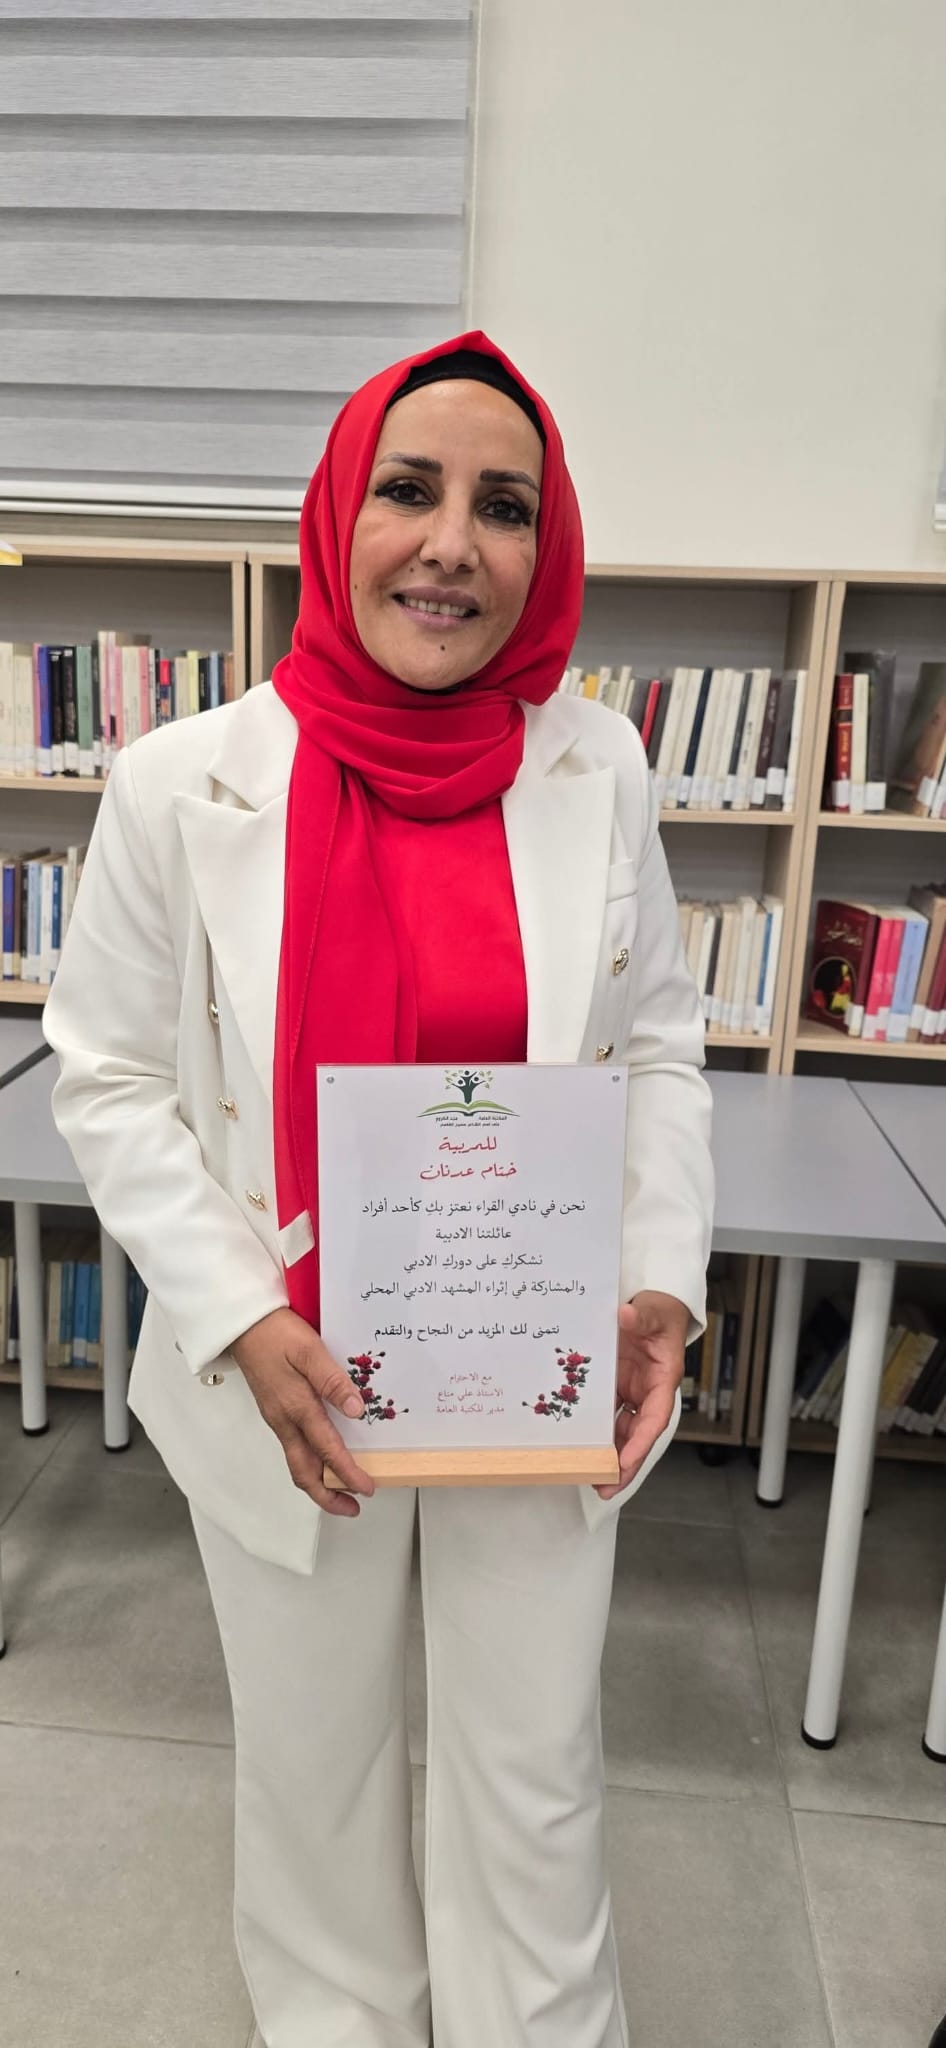 المكتبة العامة مجد الكروم
على اسم الشاعر سميح القاسم
للمربية
ختام عدنان
نحن في نادي القراء نعتز بكِ كأحد أفراد
عائلتنا الادبية
نشكركِ على دوركِ الادبي
والمشاركة في إثراء المشهد الادبي المحلي
نتمنى لك المزيد من النجاح والتقدم
مع الاحترام
الاستاذ علي مناع
مدير المكتبة العامة